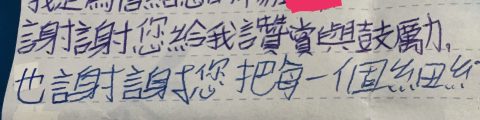 謝謝您給我讚賞與鼓勵,
也謝謝您把每一個細